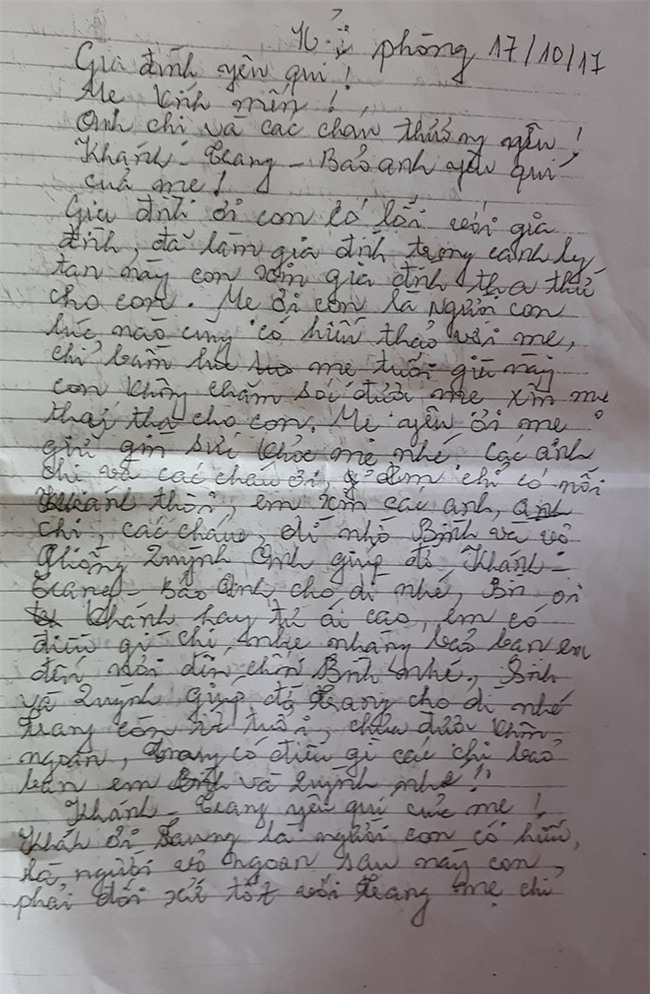 Hải phòng 17/10/17
Gia đình yêu quí!
Mẹ kính mến!
Anh chị và các cháu thương yêu!
Khánh - Trang - Bảo anh yêu quí
của mẹ!
Gia đình ơi con có lỗi với gia
đình, đã làm gia đình trong cảnh ly
tan này con xin gia đình tha thứ
cho con. Mẹ ơi con là người con
lúc nào cũng có hiếu thảo với mẹ,
chỉ mẹ tuổi già này
con không chăm sóc được mẹ xin mẹ
tha thứ cho con. Mẹ yêu ơi mẹ
giữ gìn sức khỏe mẹ nhé các anh
chị và các cháu ơi, em chỉ có mỗi
Khánh thôi, em xin các anh, anh
chị, các cháu, dì nhờ Bình và vợ
chồng Quỳnh Anh giúp đỡ Khánh -
Trang - Bảo Anh cho dì nhé, ơi
Khánh hay tự ái cao, em có
điều gì chị nhẹ nhàng bảo ban em
đến nơi đến chốn Bình nhé, Bình
và Quỳnh giúp đỡ Trang cho dì nhé
Trang còn ít tuổi, chưa được khôn
ngoan, Trang có điều gì các chị bảo
ban em Bình và Quỳnh nhé!
Khánh - Trang yêu quí của mẹ!
Khánh ơi Trang là người con có hiếu,
là người vợ ngoan sau này con
phải đối xử tốt với Trang mẹ chỉ